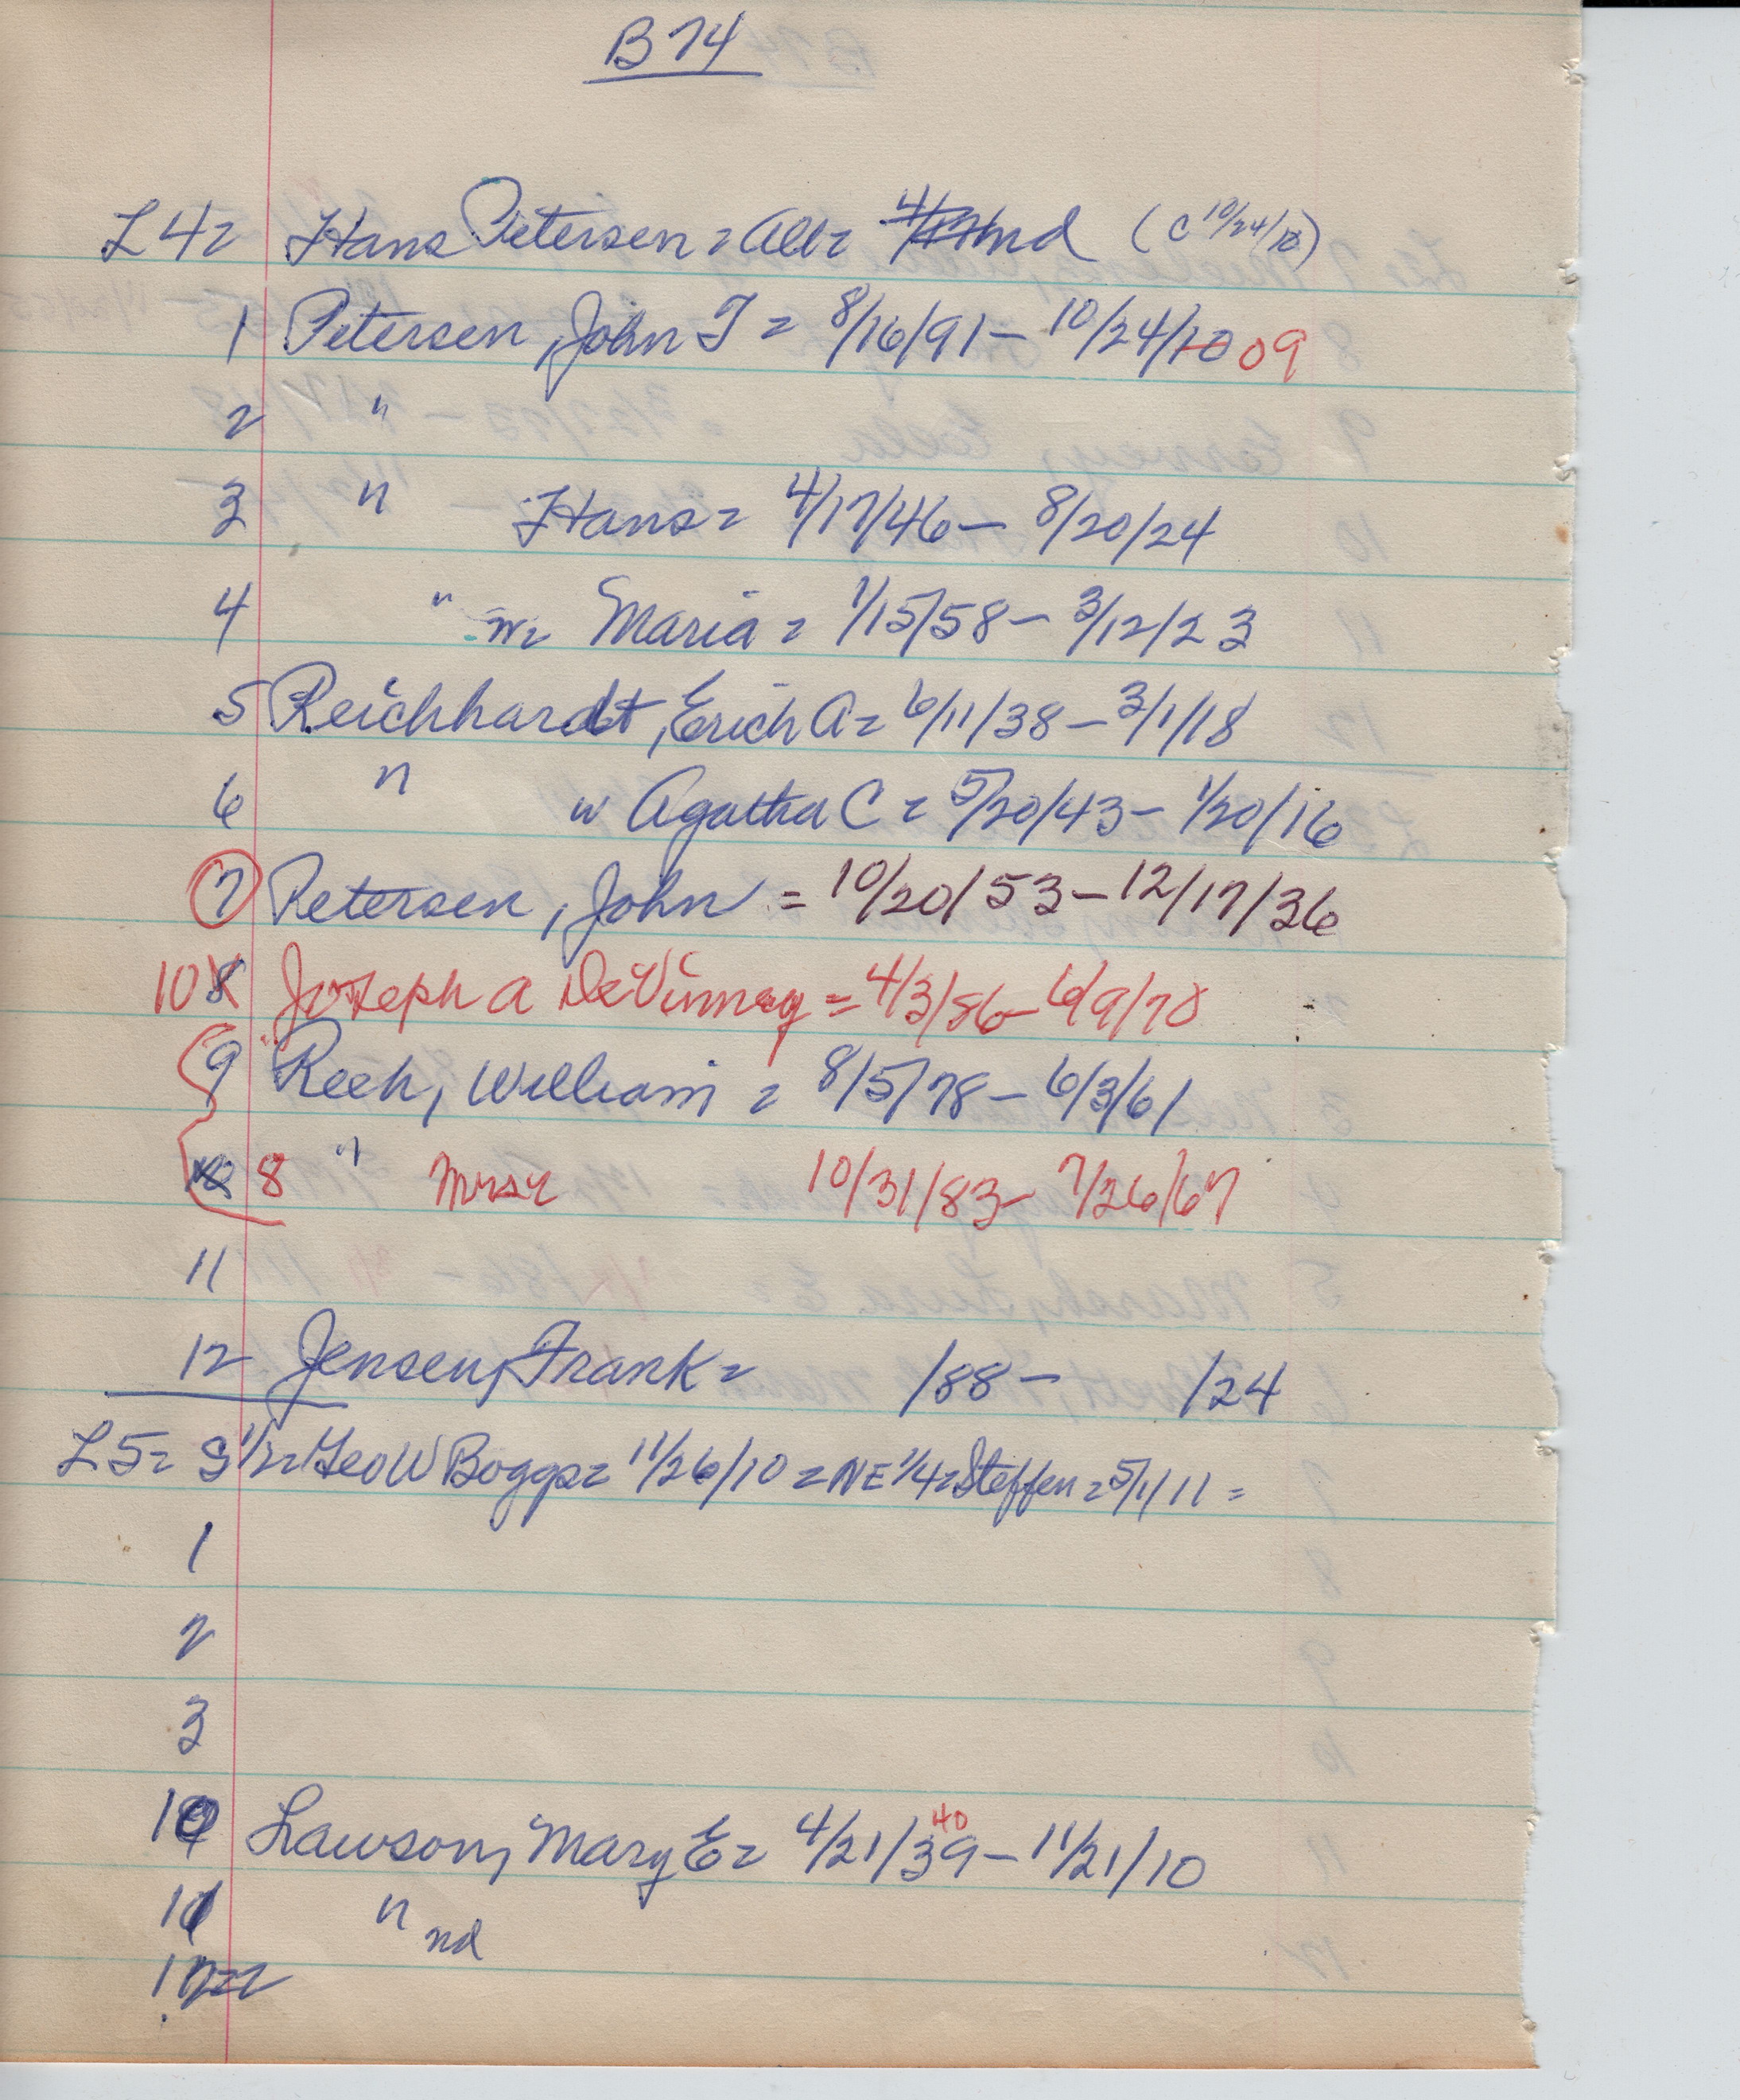 B 74
L 4 = Hans Petersen = All = nd (C 10/24/10)
1 Petersen, John T = 8/16/91 - 10/24/10 09
2 "
3 " Hans = 4/17/46 - 8/20/24
4 " w = Maria = 1/15/58 - 3/12/23
5 Reichhardt, Erich A = 6/11/38 - 3/1/18
6 " w Agatha C = 5/20/43 - 1/20/16
7 Petersen, John = 10/20/53 - 12/17/36
10 8 Joseph A DeVinney = 4/3/86 - 6/9/78
9 Reeh, William = 8/5/78 - 6/3/61
8 " Mrs 10/31/83 - 7/26/67
11
12 Jensen, Frank = /88 - /24
L 5 = S 1/2 = Geo W Boggs = 11/26/10 = NE 1/4 = Steffen = 5/1/11 =
1
2
3
10 Lawson, Mary E = 4/21/39 40 - 11/21/10
11 " nd
12 =